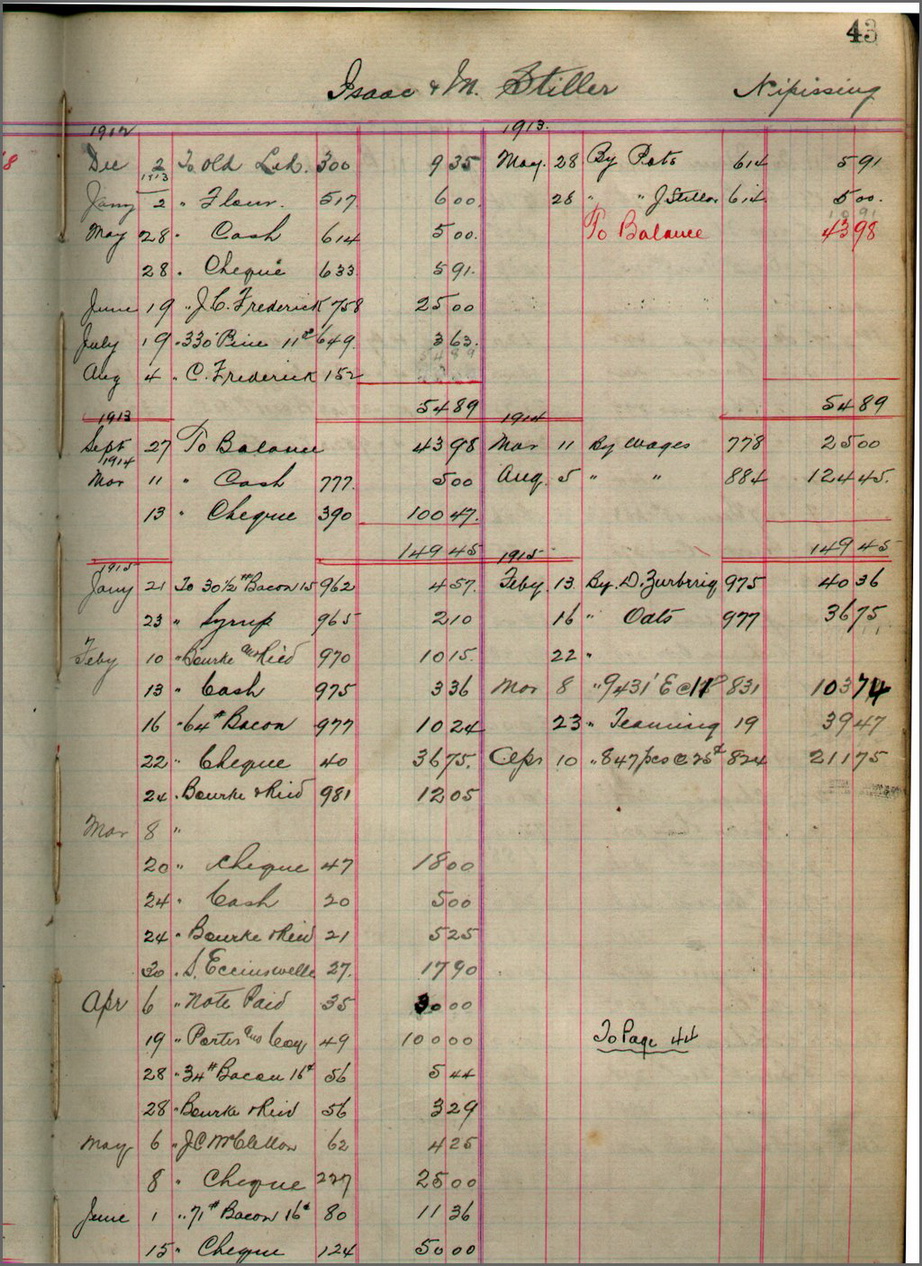 43
Isaac & M. Stiller Nipissing
1912 1913.
Dec 2 To Old Led. 300 9 35 May 28 By Rots 614 5 91
1913
Jany 2 " Flour. 517 6 00. 28 " " J Stiller 614 5 00.
10 91
May 28 " Cash 614 5 00. To Balance 43 98
28 " Cheque 633 5 91.
June 19 " J. C. Frederick 758 25 00
July 19 " 330' Pine 11 649. 3 63.
54 89
Aug 4 " C. Frederick 152
54 89 54 89
1913 1914
Sept 27 To Balance 43 98 Mar 11 By Wages 778 25 00
1914
Mar 11 " Cash 777. 5 00 Aug. 5 " " 884 124 45.
13 " Cheque 390 100 47.
149 45 149 45
1915 1915
Jany 21 To 30½# Bacon 15 962 4 57. Feby 13 By D. Zurbrrig 975 40 36
23 " Syrup 965 2 10 16 " Oats 977 36 75
Feby 10 " Bourke and Ried 970 10 15. 22 "
13 " Cash 975 3 36 Mar 8 " 9431' E @ 11 831 103 74
16 " 64# Bacon 977 10 24 23 " Teaming 19 39 47
22 " Cheque 40 36 75. Apr 10 " 847 pcs @ 25¢ 824 211 75
24 " Bourke & Ried 981 12 05
Mar 8 "
20 " Cheque 47 18 00
24 " Cash 20 5 00
24 " Bourke & Ried 21 5 25
30 " S. 27. 17 90
Apr 6 " Note Paid 35 30 00
19 " Porter and Coy 49 100 00 To Page 44
28 " 34# Bacon 16¢ 56 5 44
28 " Bourke & Ried 56 3 29
May 6 " J C McClellon 62 4 25
8 " Cheque 227 25 00
June 1 " 71# Bacon 16¢ 80 11 36
15 " Cheque 124 50 00